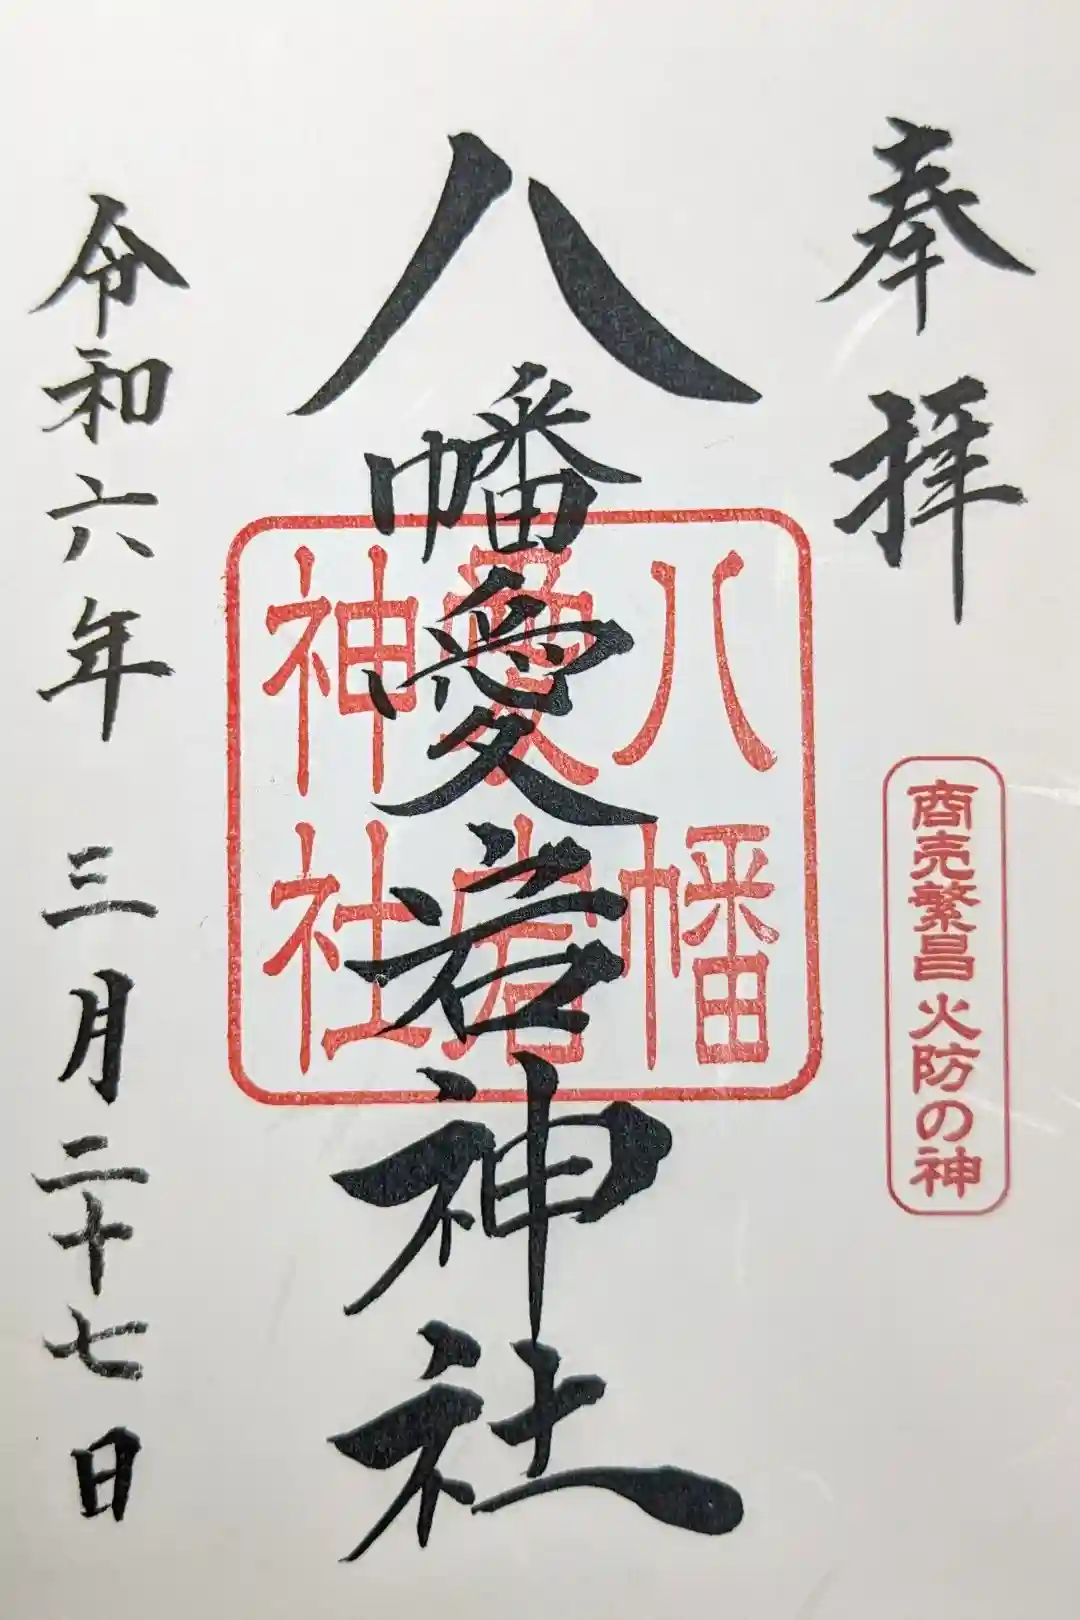 奉拝
商売繁昌 火防の神
八幡愛宕神社
八幡
愛宕
神社
令和六年 三月二十七日